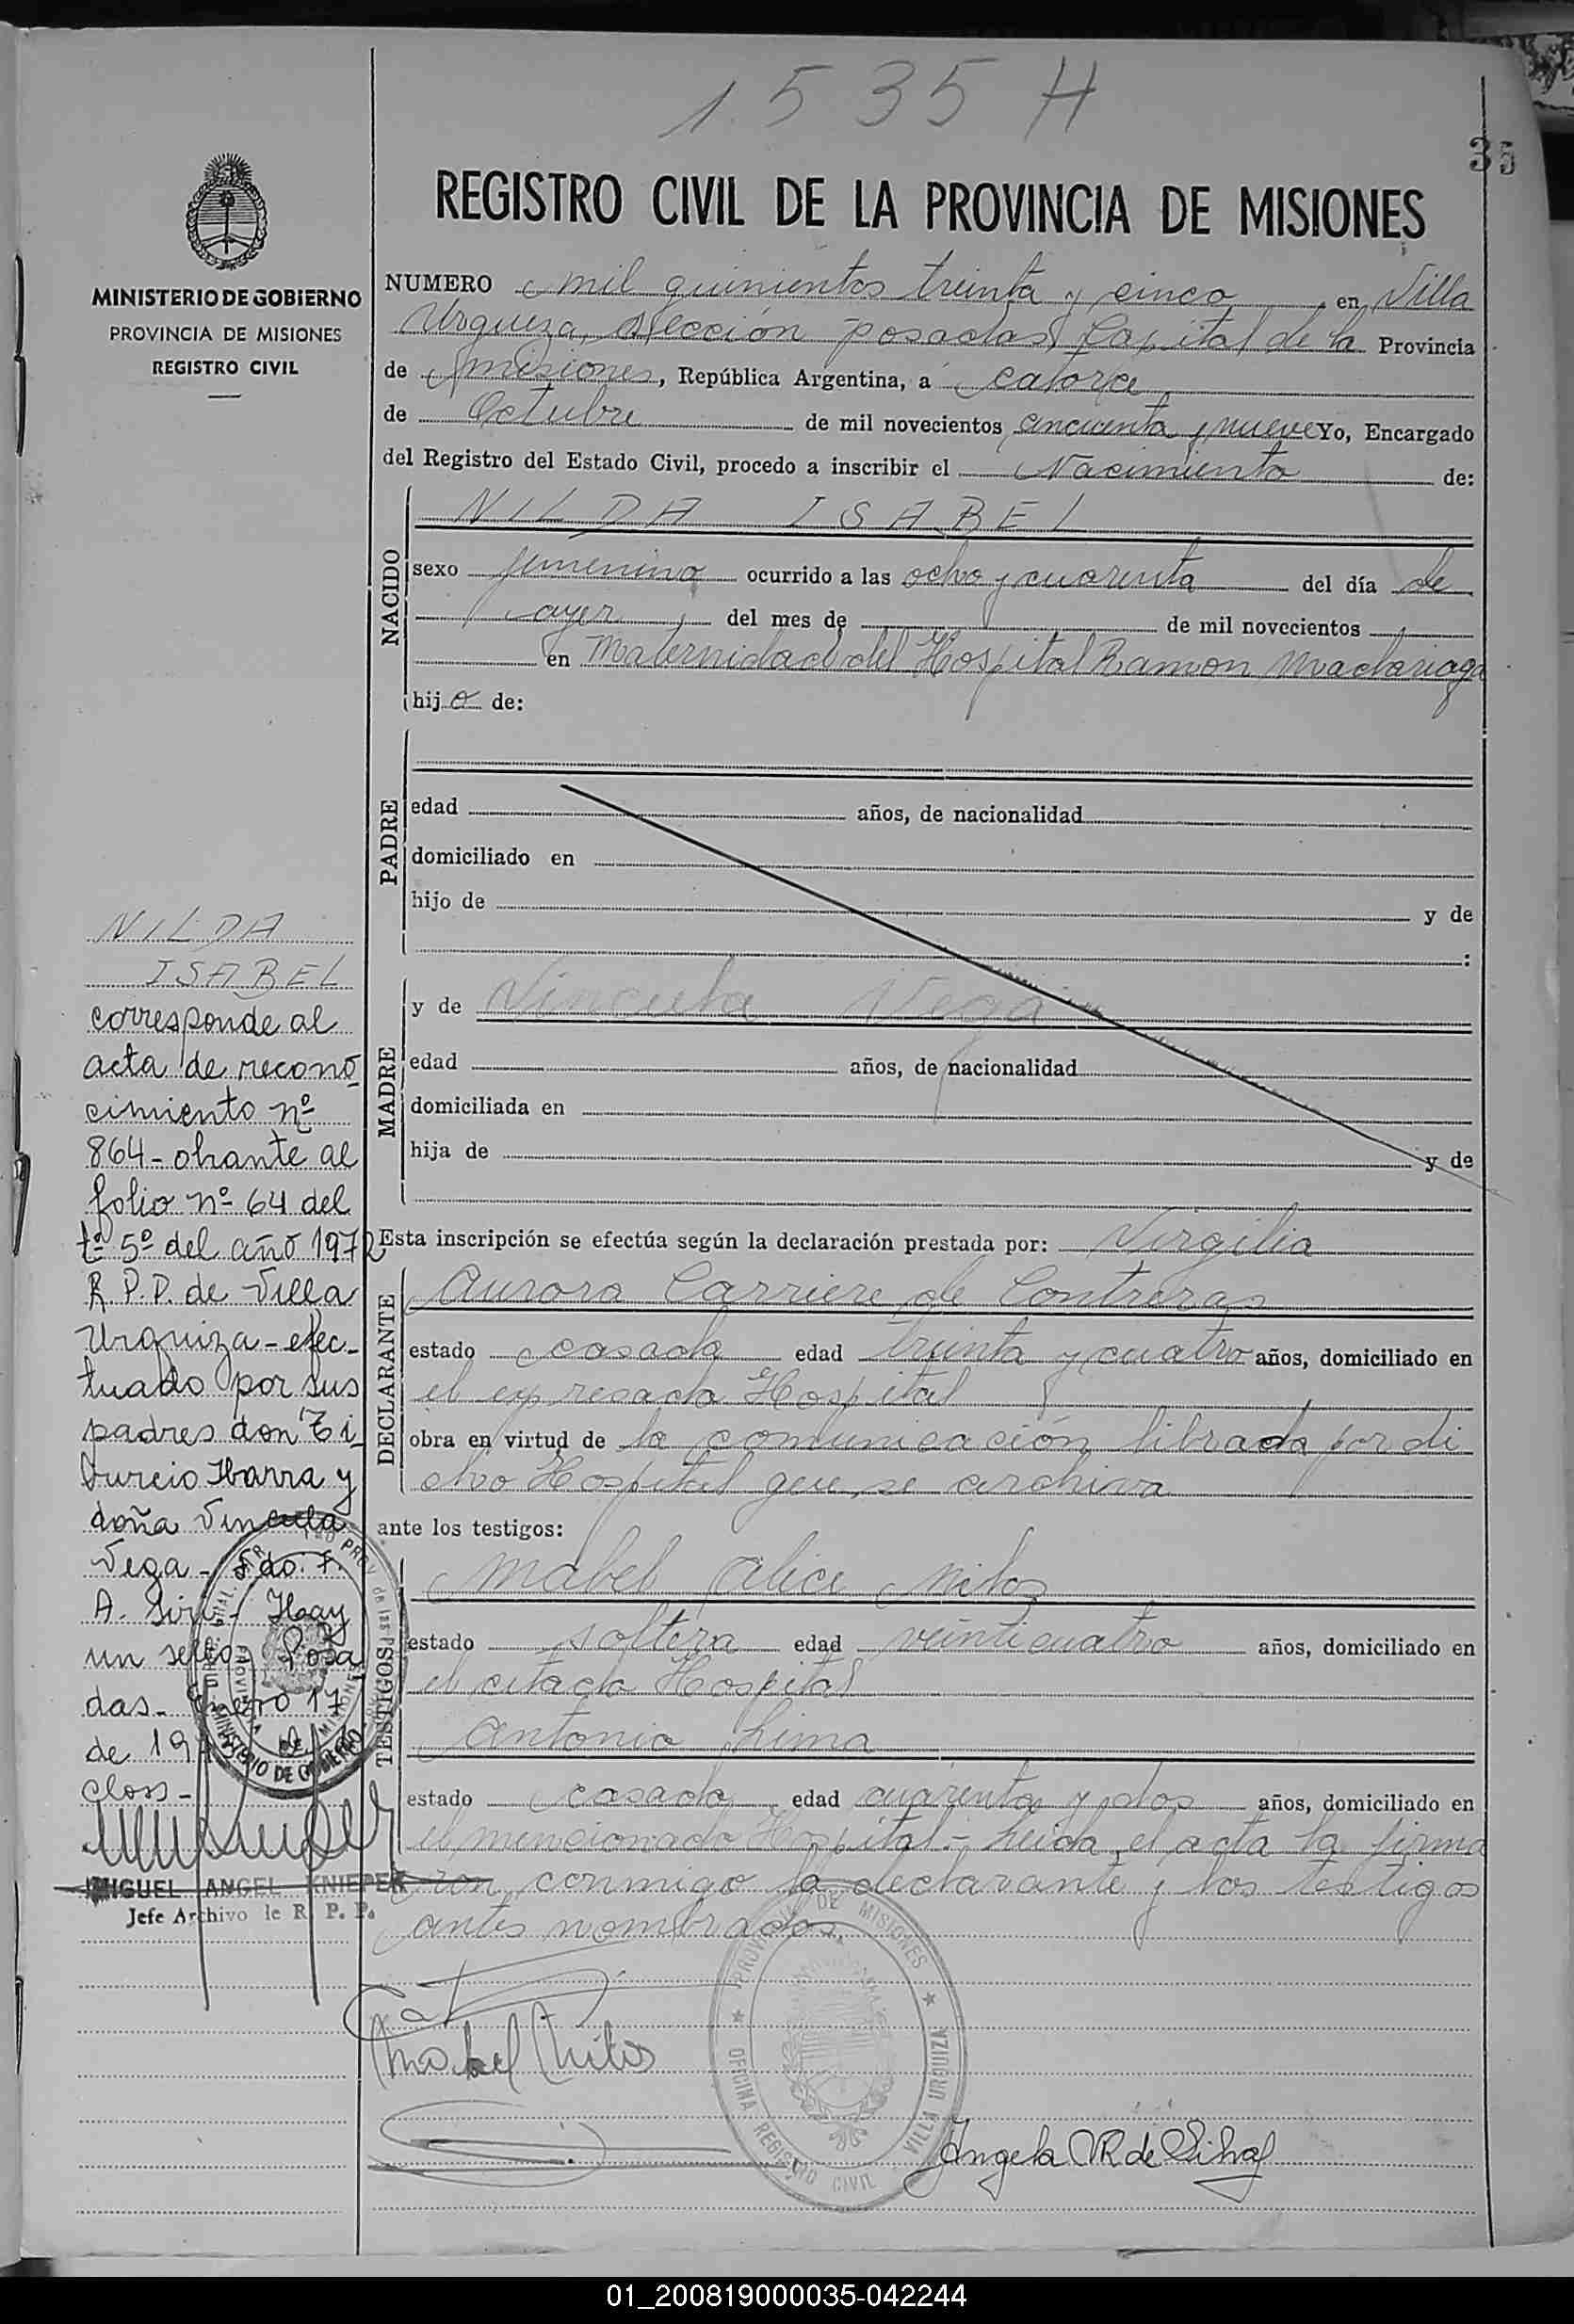 1535 H
35
REGISTRO CIVIL DE LA PROVINCIA DE MISIONES
MINISTERIO DE GOBIERNO
PROVINCIA DE MISIONES
REGISTRO CIVIL
NUMERO mil quinientos treinta y cinco, en Villa
Urquiza, Sección Posadas, Capital de la Provincia
de Misiones, República Argentina, a catorce
de Octubre de mil novecientos cincuenta y nueve Yo, Encargado
del Registro del Estado Civil, procedo a inscribir el Nacimiento de:
NACIDO
NILDA ISABEL
sexo femenino ocurrido a las ocho y cuarenta del día de
ayer, del mes de de mil novecientos
en Maternidad del Hospital Ramon Madariaga
hija de:
PADRE
edad años, de nacionalidad
domiciliado en
hijo de y de
:
MADRE
y de Vincula Vega
edad años, de nacionalidad
domiciliada en
hija de y de
Esta inscripción se efectúa según la declaración prestada por: Virgilia
DECLARANTE
Aurora Carriere de Contreras
estado casada edad treinta y cuatro años, domiciliado en
el expresado Hospital
obra en virtud de la comunicación librada por di
cho Hospital que se archiva
ante los testigos:
TESTIGOS
Mabel Alice Mitos
estado soltera edad veinticuatro años, domiciliado en
el citado Hospital
Antonio Lima
estado casado edad cuarenta y dos años, domiciliado en
el mencionado Hospital.- Leida el acta la firma
ron conmigo la declarante y los testigos
antes nombrados.
Mabel Mitos
Angela R de
PROVINCIA DE MISIONES
OFICINA REGISTRO CIVIL VILLA URQUIZA
NILDA
ISABEL
corresponde al
acta de recono
cimiento nº
864- obrante al
folio nº 64 del
tº 5º del año 1972
R.P.P. de Villa
Urquiza- efec-
tuado por sus
padres don Ti
burcio Ibarra y
doña Vincula
Vega- Fdo. F.
A. Hay
un sello Posa
das- Enero 17
de 19
Closs-
MINISTERIO DE GOBIERNO
MIGUEL ANGEL KNIEPER
Jefe Archivo de R. P. P.
01_200819000035-042244